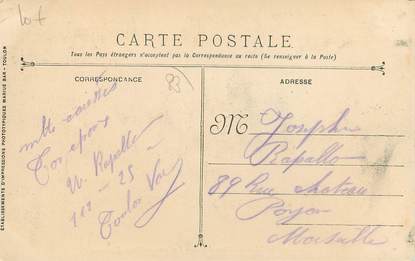 lot
CARTE POSTALE
Tous les Pays étrangers n'acceptent pas la Correspondance au recto (Se renseigner à la Poste)
CORRESPONDANCE
83
ADRESSE
mille caresses
Ton époux
Rapallo
112 - 25
Toulon Var
M Joseph
Rapallo
89 Rue chateau
Payan
Marseille
ÉTABLISSEMENTS D'IMPRESSIONS PHOTOTYPIQUES MARIUS BAR - TOULON